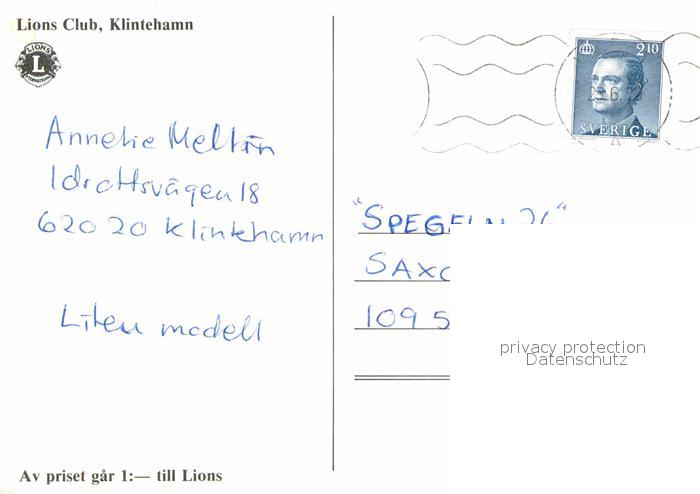 Lions Club, Klintehamn
LIONS
L
INTERNATIONAL
Annelie
Idrottsvägen 18
620 20 Klintehamn
Liten modell
Av priset går 1:— till Lions
2 10
SVERIGE
"SPEGELN
SAXO
109 5
privacy protection
Datenschutz